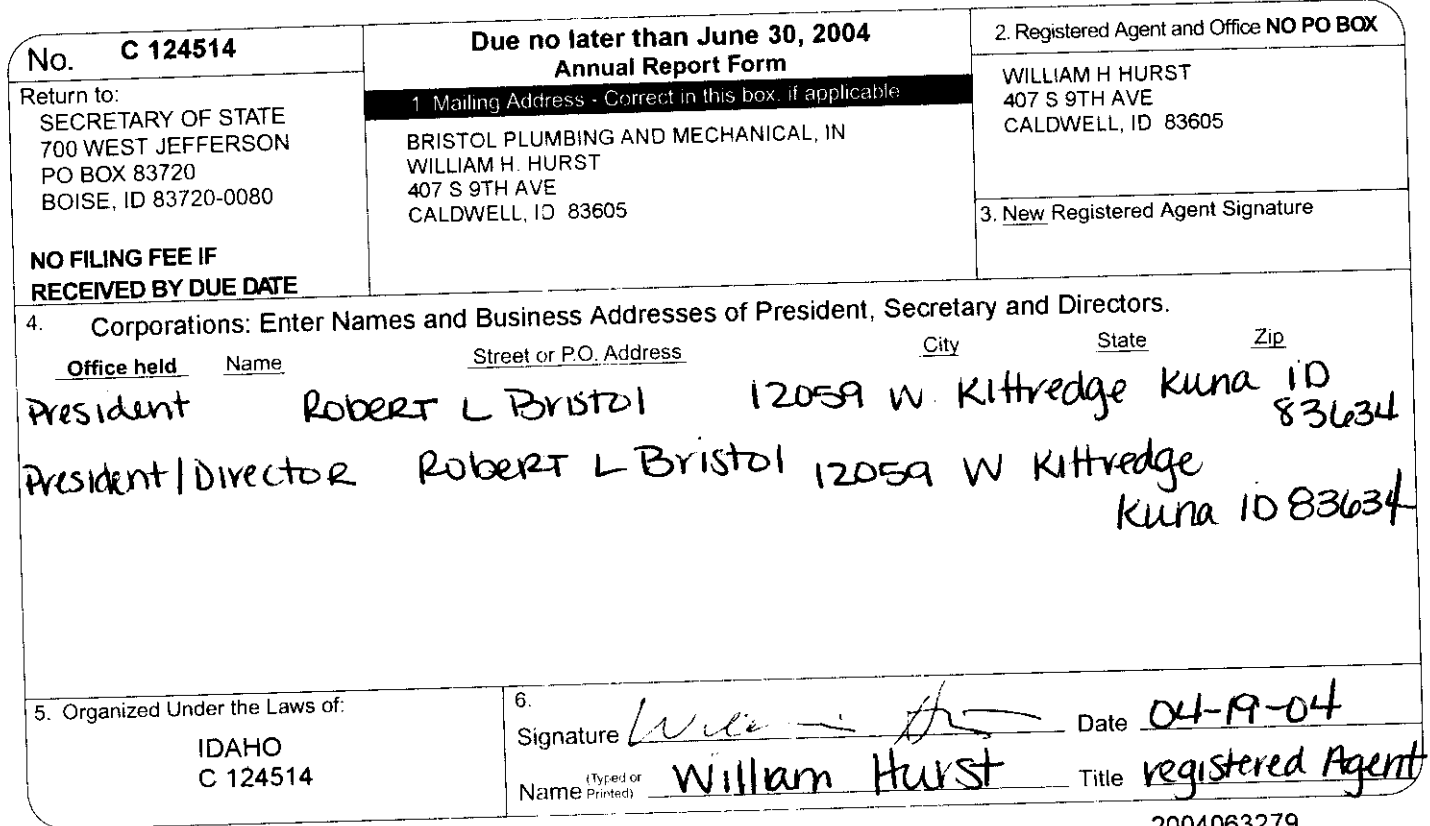 No. C 124514
Return to:
SECRETARY OF STATE
700 WEST JEFFERSON
PO BOX 83720
BOISE, ID 83720-0080
NO FILING FEE IF
RECEIVED BY DUE DATE
Due no later than June 30, 2004
Annual Report Form
1 Mailing Address - Correct in this box, if applicable
BRISTOL PLUMBING AND MECHANICAL, IN
WILLIAM H. HURST
407 S 9TH AVE
CALDWELL, ID 83605
2. Registered Agent and Office NO PO BOX
WILLIAM H HURST
407 S 9TH AVE
CALDWELL, ID 83605
3. New Registered Agent Signature
4. Corporations: Enter Names and Business Addresses of President, Secretary and Directors.
Office held Name Street or P.O. Address City State Zip
President Robert L Bristol 12059 W. Kittredge Kuna ID
83634
President/Director Robert L Bristol 12059 W Kittredge
Kuna ID 83634
5. Organized Under the Laws of:
IDAHO
C 124514
6.
Signature Date 04-19-04
Name (Typed or Printed) William Hurst Title registered Agent
2004063279